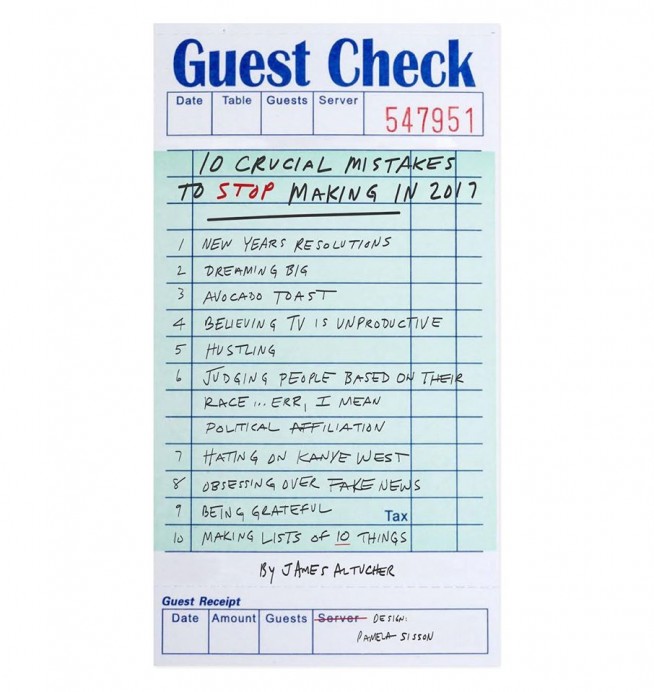 Guest Check
Date Table Guests Server 547951
10 CRUCIAL MISTAKES
TO STOP MAKING IN 2017
1 NEW YEARS RESOLUTIONS
2 DREAMING BIG
3 AVOCADO TOAST
4 BELIEVING TV IS UNPRODUCTIVE
5 HUSTLING
6 JUDGING PEOPLE BASED ON THEIR
RACE ... ERR, I MEAN
POLITICAL AFFILIATION
7 HATING ON KANYE WEST
8 OBSESSING OVER FAKE NEWS
9 BEING GRATEFUL Tax
10 MAKING LISTS OF 10 THINGS
BY JAMES ALTUCHER
Guest Receipt
Date Amount Guests Server DESIGN:
PAMELA SISSON